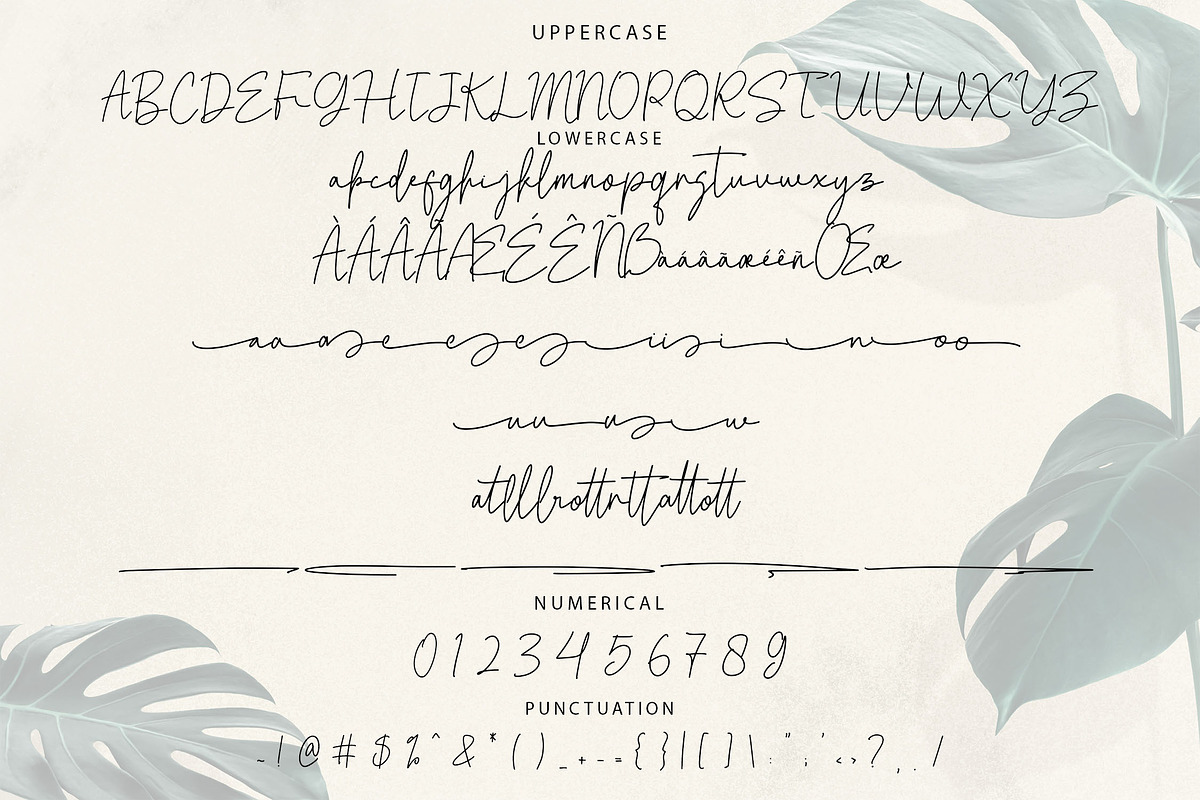 UPPERCASE
ABCDEFGHIJKLMNOPQRSTUVWXYZ
LOWERCASE
abcdefghijklmnopqrstuvwxyz
ÀÁÂÃÆÉÊÑßàáâãæéêñŒœ
aaase eses iisi i n oo
uu us w
atlllrottrttattott
NUMERICAL
0123456789
PUNCTUATION
~!@#$%^&*()_+-={}|[]\:";'<>?,./